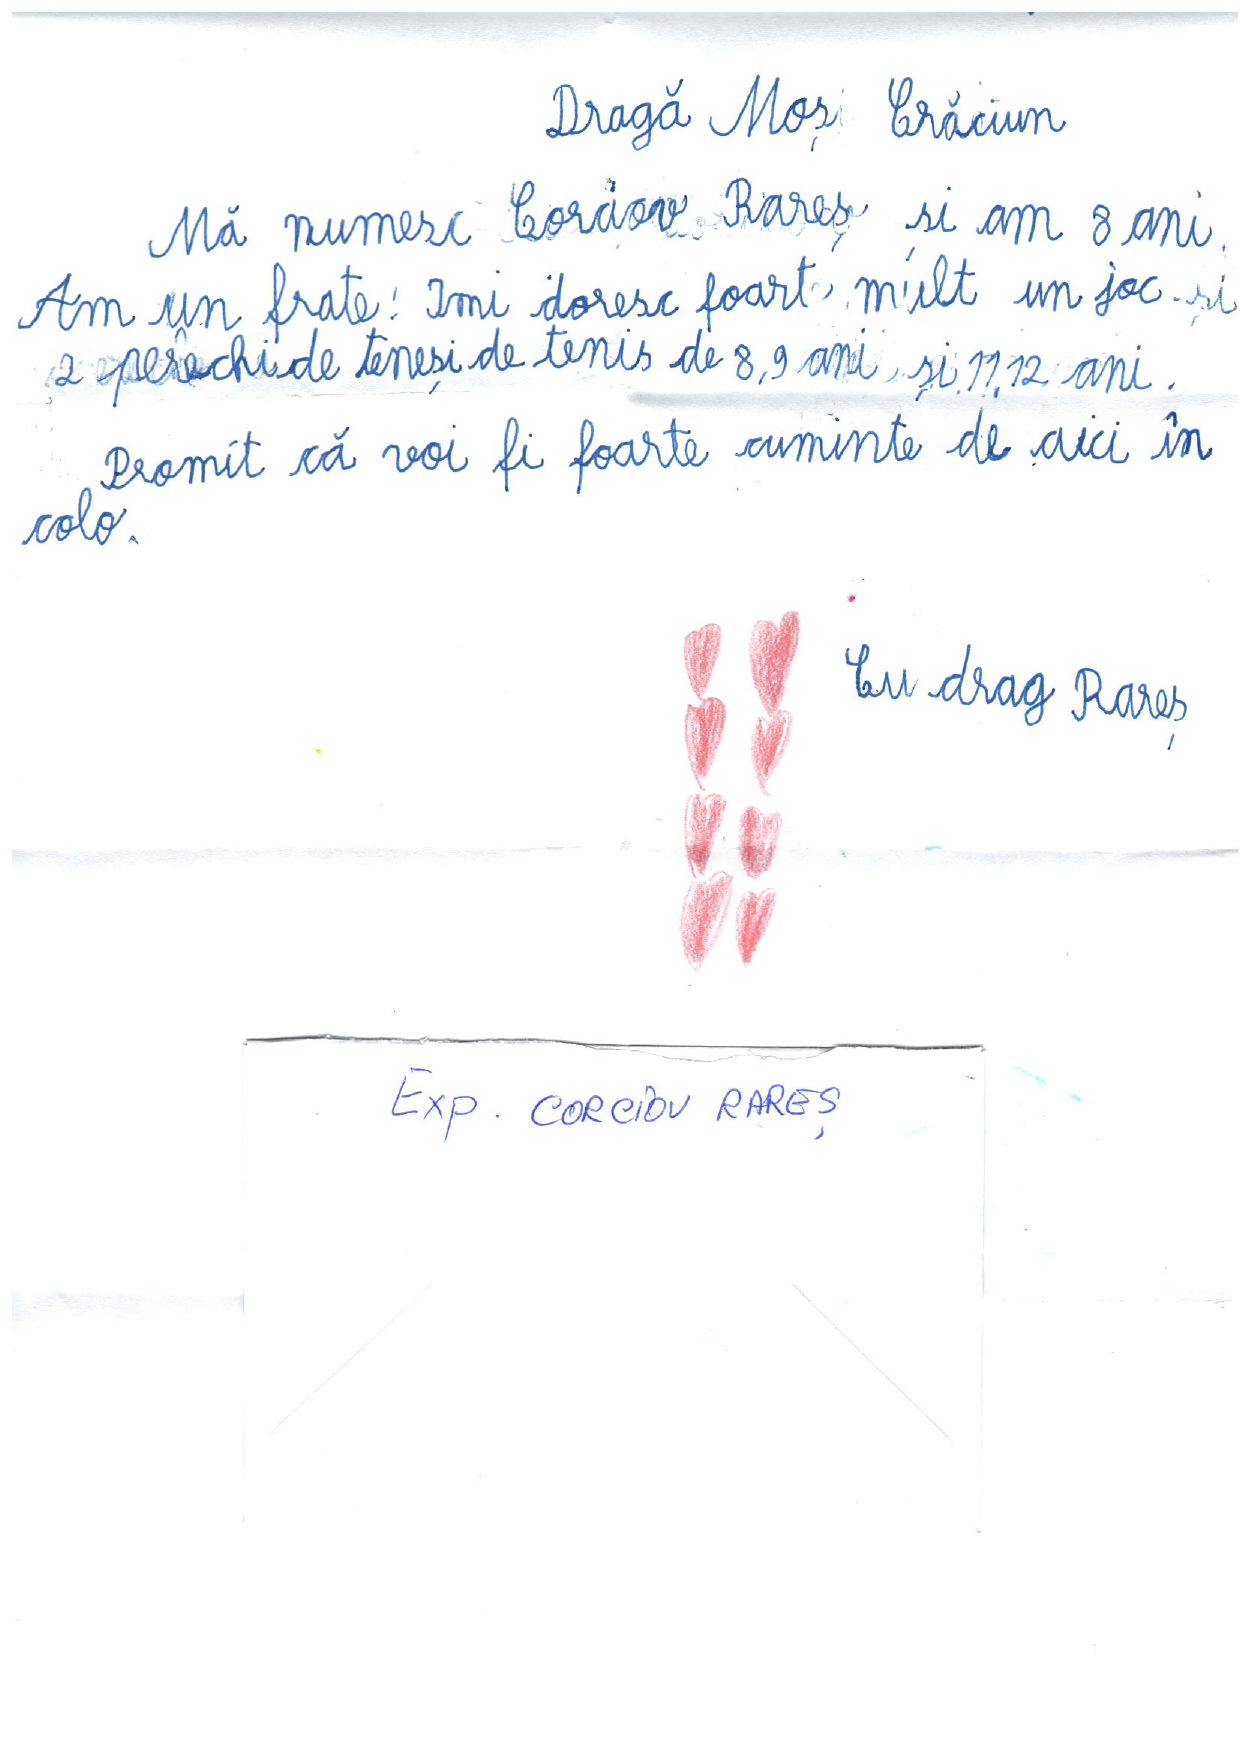 Dragă Moș Crăciun
Mă numesc Corciov Rareș și am 8 ani.
Am un frate! Imi doresc foarte mult un joc și
2 perechi de teneși de tenis de 8,9 ani și 11,12 ani.
Promit că voi fi foarte cuminte de aici în
colo.
Cu drag Rareș
Exp. CORCIOV RAREȘ